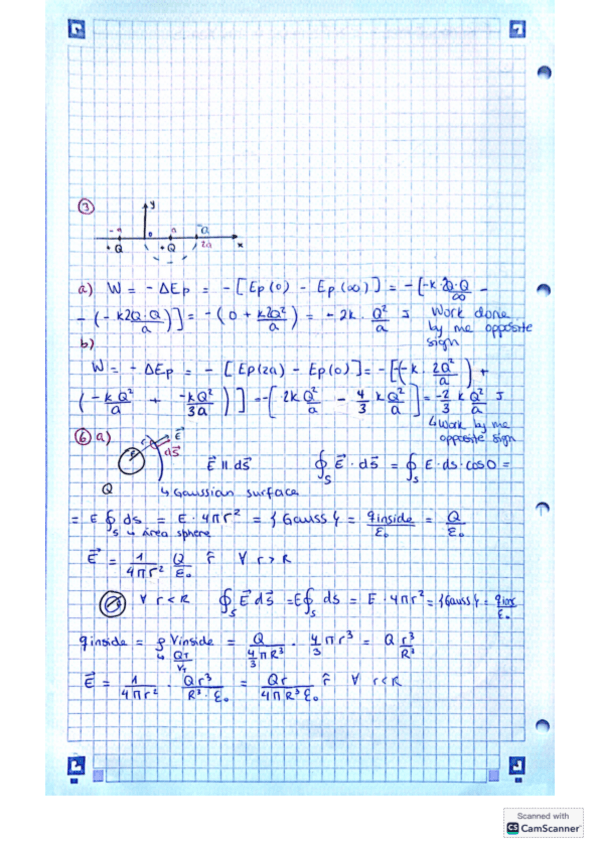 ③
y
-a 0 a -a
+Q +Q 2a x
a) W = - ΔEp = - [Ep(0) - Ep(∞)] = -[-k 2Q·Q/∞ -
- (-k2Q·Q/a)] = -(0 + k2Q²/a) = -2k · Q²/a J Work done
by me opposite
sign
b)
W = - ΔEp = - [Ep(2a) - Ep(0)] = -[(-k · 2Q²/a) +
(-kQ²/a + -kQ²/3a)] = -[2kQ²/a - 4/3 kQ²/a] = -2/3 k Q²/a J
↳ Work by me
opposite sign
⑥ a)
r E⃗
R dS⃗
E⃗ ∥ dS⃗ ∮s E⃗ · dS⃗ = ∮s E · ds · cos0 =
Q ↳ Gaussian surface
= E ∮s ds = E · 4πr² = {Gauss} = qinside/ε₀ = Q/ε₀
↳ área sphere
E⃗ = 1/4πr² Q/ε₀ r̂ ∀ r > R
∀ r < R ∮s E⃗ dS⃗ = E∮s ds = E · 4πr² = {Gauss} = qins/ε₀
qinside = ρ Vinside = Q/(4/3 πR³) · 4/3 πr³ = Q r³/R³
↳ QT/VT
E⃗ = 1/4πr² · Qr³/R³·ε₀ = Qr/4πR³ε₀ r̂ ∀ r<R
Scanned with
CS CamScanner